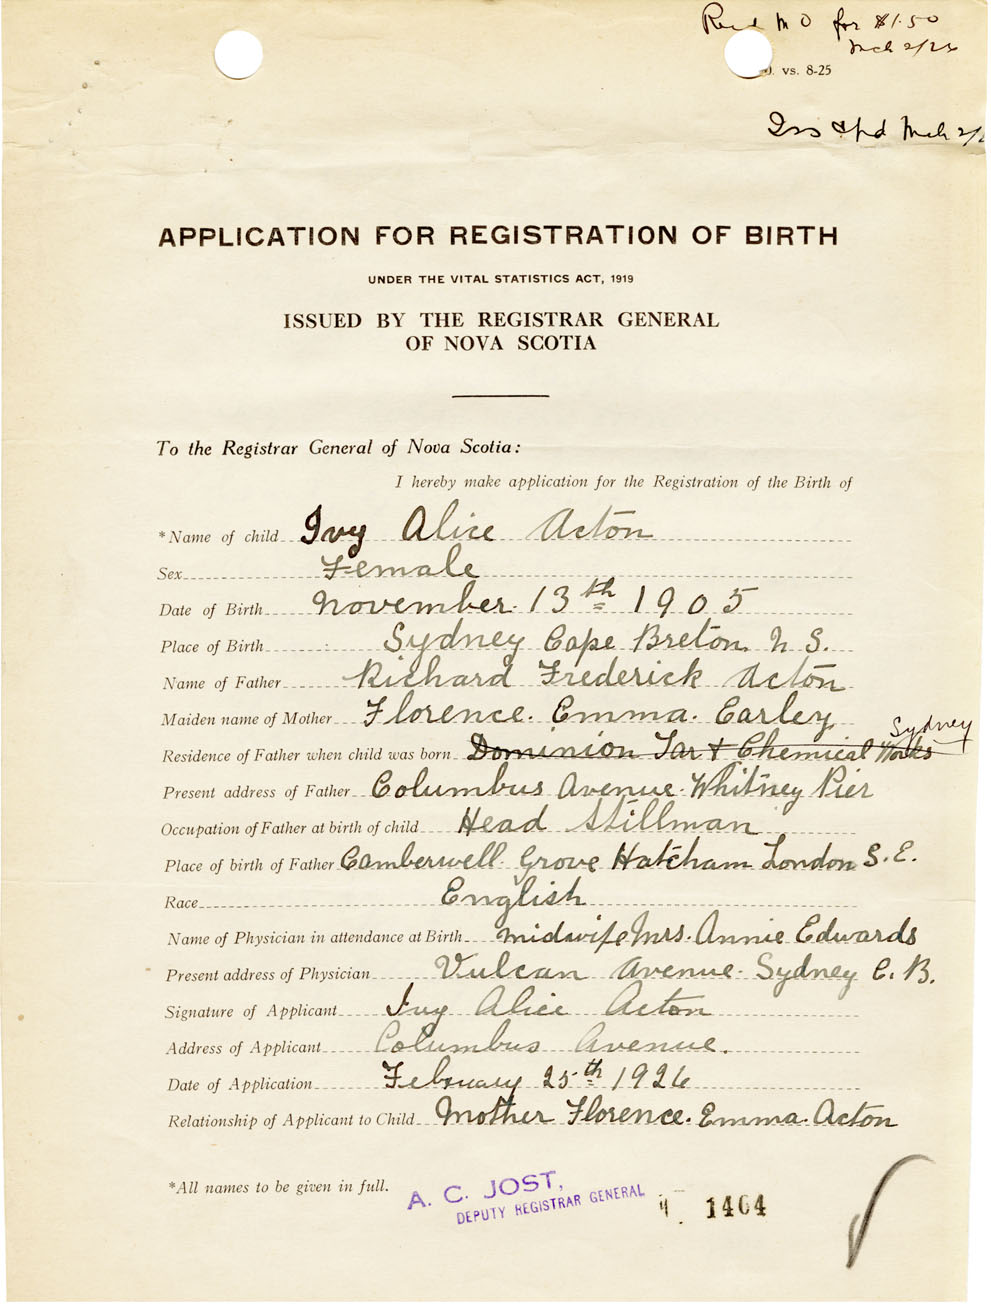 Recd M O for $1.50
Mch 2/26
0. vs. 8-25
Iss & pd Mch 2/
APPLICATION FOR REGISTRATION OF BIRTH
UNDER THE VITAL STATISTICS ACT, 1919
ISSUED BY THE REGISTRAR GENERAL
OF NOVA SCOTIA
To the Registrar General of Nova Scotia:
I hereby make application for the Registration of the Birth of
*Name of child Ivy Alice Acton
Sex Female
Date of Birth November 13th 1905
Place of Birth Sydney Cape Breton N S.
Name of Father Richard Frederick Acton
Maiden name of Mother Florence. Emma. Earley
Sydney
Residence of Father when child was born Dominion Tar & Chemical Works
Present address of Father Columbus Avenue. Whitney Pier
Occupation of Father at birth of child Head Stillman
Place of birth of Father Camberwell Grove Hatcham London S.E.
Race English
Name of Physician in attendance at Birth midwife Mrs. Annie Edwards
Present address of Physician Vulcan Avenue. Sydney C. B.
Signature of Applicant Ivy Alice Acton
Address of Applicant Columbus Avenue.
Date of Application February 25th 1926
Relationship of Applicant to Child Mother Florence. Emma. Acton
*All names to be given in full.
A. C. JOST,
DEPUTY REGISTRAR GENERAL
1404